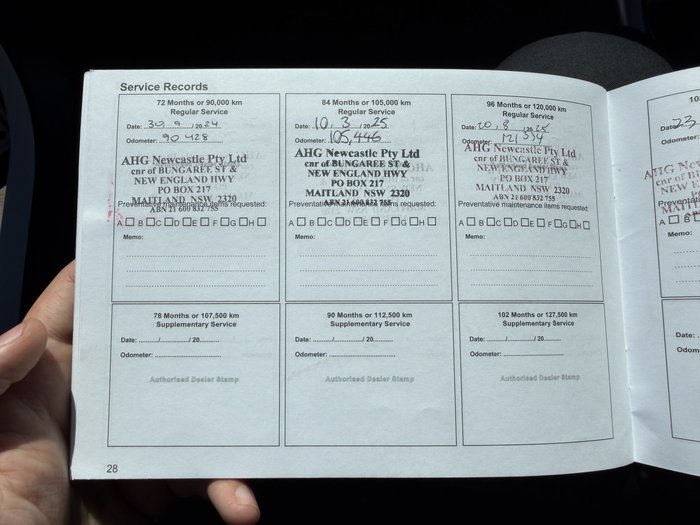 Service Records
72 Months or 90,000 km
Regular Service
Date: 30 / 9 / 2024
Odometer: 90 428
AHG Newcastle Pty Ltd
cnr of BUNGAREE ST &
NEW ENGLAND HWY
PO BOX 217
MAITLAND NSW 2320
ABN 21 600 832 755
Preventative maintenance items requested:
A B C D E F G H
Memo:
84 Months or 105,000 km
Regular Service
Date: 10 / 3 / 2025
Odometer: 105,446
AHG Newcastle Pty Ltd
cnr of BUNGAREE ST &
NEW ENGLAND HWY
PO BOX 217
MAITLAND NSW 2320
ABN 21 600 832 755
Preventative maintenance items requested:
A B C D E F G H
Memo:
96 Months or 120,000 km
Regular Service
Date: 20 / 8 / 2025
Odometer: 121 534
AHG Newcastle Pty Ltd
cnr of BUNGAREE ST &
NEW ENGLAND HWY
PO BOX 217
MAITLAND NSW 2320
ABN 21 600 832 755
Preventative maintenance items requested:
A B C D E F G H
Memo:
78 Months or 107,500 km
Supplementary Service
Date: ........./........./ 20.........
Odometer: .............................
Authorised Dealer Stamp
90 Months or 112,500 km
Supplementary Service
Date: ........./........./ 20.........
Odometer: .............................
Authorised Dealer Stamp
102 Months or 127,500 km
Supplementary Service
Date: ........./........./ 20.........
Odometer: .............................
Authorised Dealer Stamp
28
10
Date: 23
Odom
AHG N
cnr of B
NEW E
P
MAITL
Preventati
A B
Memo:
Date: .
Odom